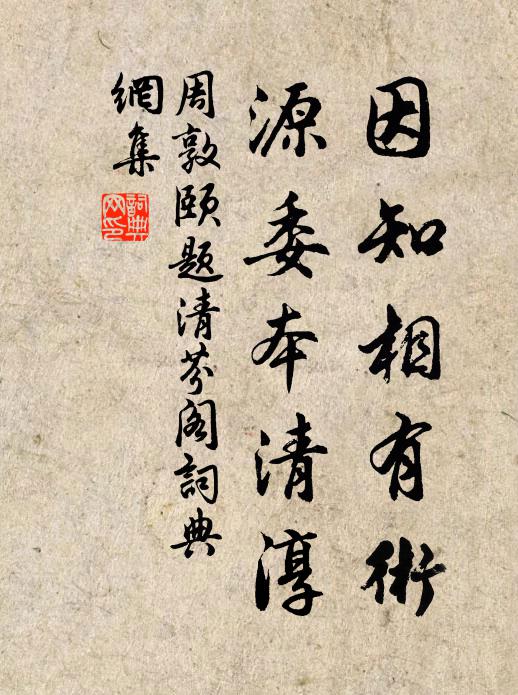 因知相有術
源委本清淳
周敦頤題清芬阁詞典
網集
詞典
网印